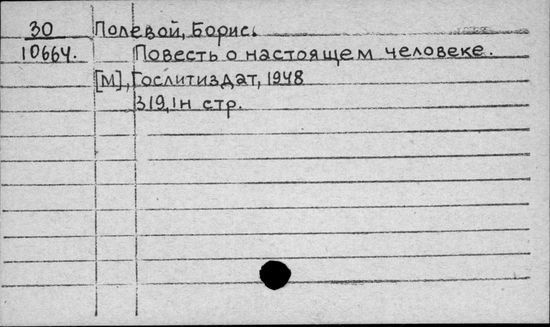 30 Полевой, Борис.
10664. Повесть о настоящем человеке.
[М], Гослитиздат, 1948
319, 1н стр.